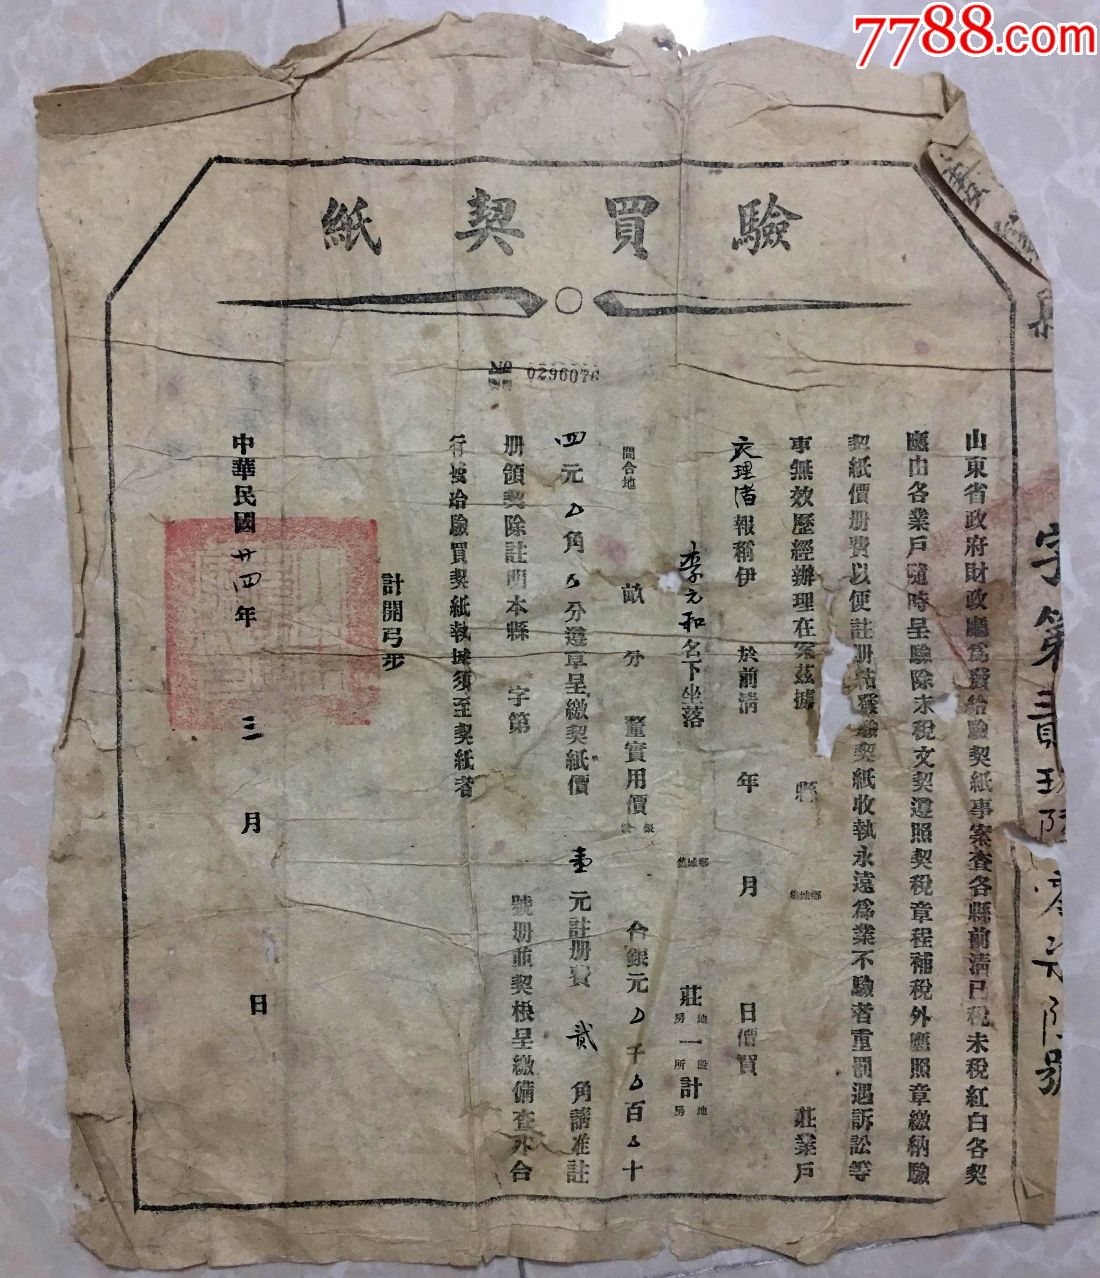 7788.com
驗買契紙
0296076
字第貳
號
山東省政府財政廳爲發給驗契紙事案查各縣前清已稅未稅紅白各契
應由各業戶隨時呈驗除未稅文契遵照契稅章程補稅外應照章繳納驗
契紙價册費以便註册粘發驗契紙收執永遠爲業不驗者重罰遇訴訟等
事無效歷經辦理在案茲據 縣 鄉城集 莊業戶
報稱伊 於前清 年 月 日價買
李元和名下坐落 鄉城集 莊 地房 一 段所 計 地房
間合地 畝 分 釐實用價 銀 合銀元 千 百 十
四元 角 分遵章呈繳契紙價 壹元註册費 貳 角請准註
册領契除註明本縣 字第 號册並契根呈繳備查外合
行發給驗買契紙執據須至契紙者
計開弓步
中華民國廿四年 三 月 日